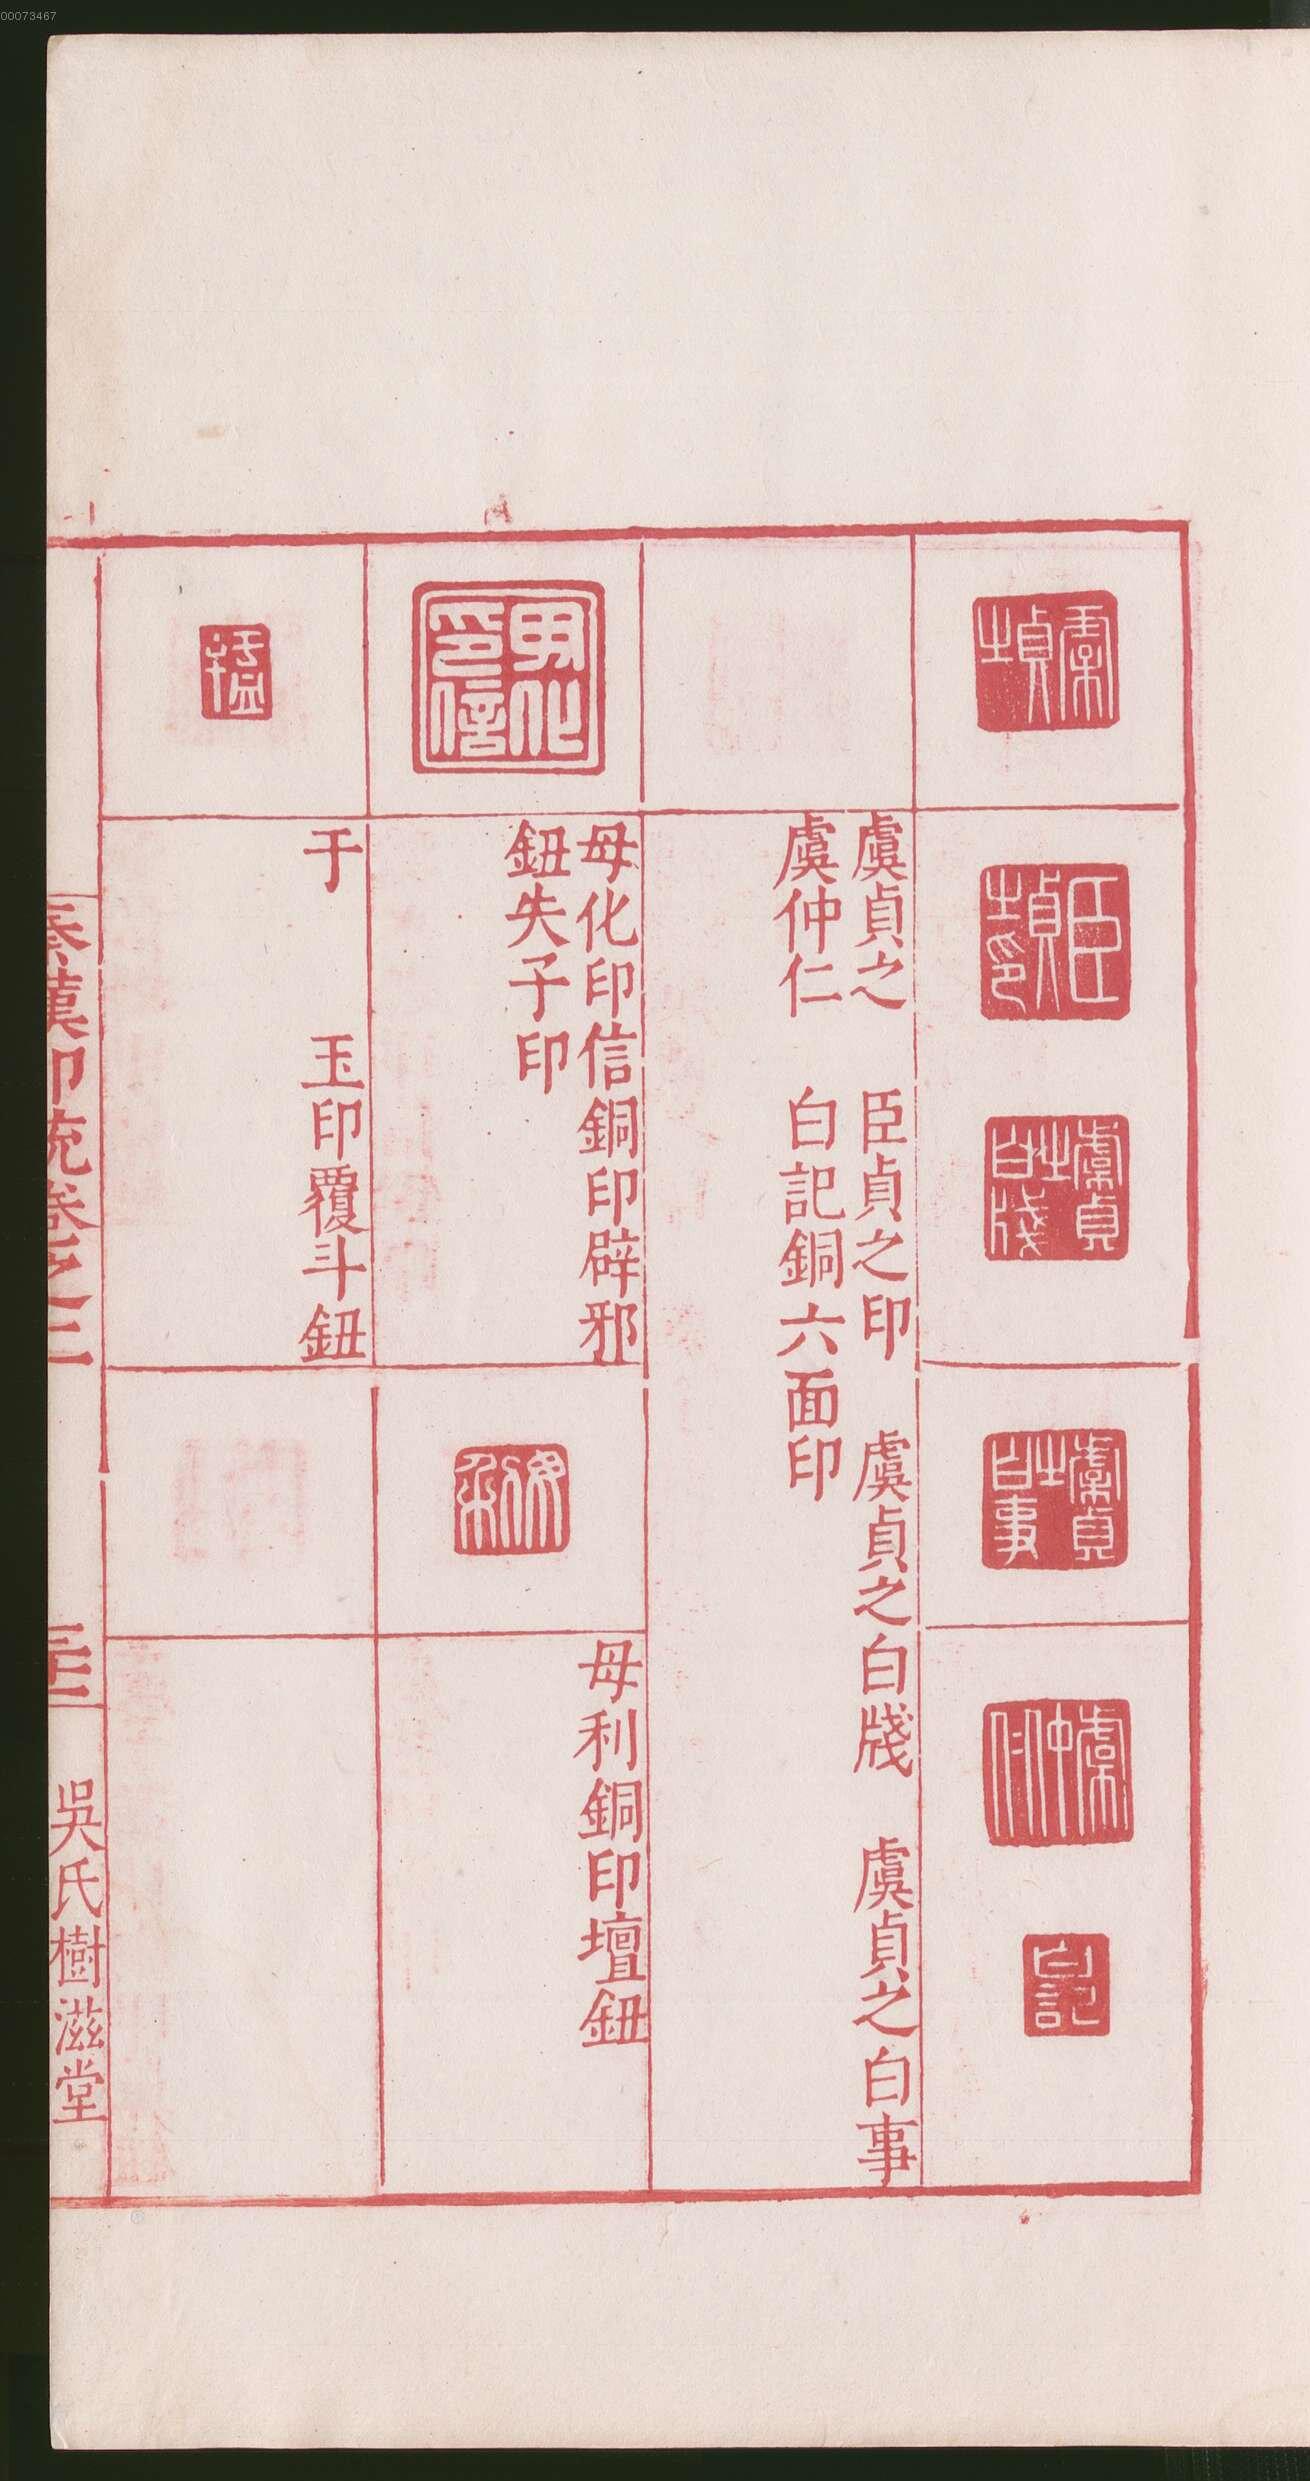 00073467
虞貞之　臣貞之印　虞貞之白牋　虞貞之白事
虞仲仁　白記銅六面印
毋化印信銅印辟邪
鈕失子印
毋利銅印壇鈕
于　玉印覆斗鈕
秦漢印統卷之二
吳氏樹滋堂